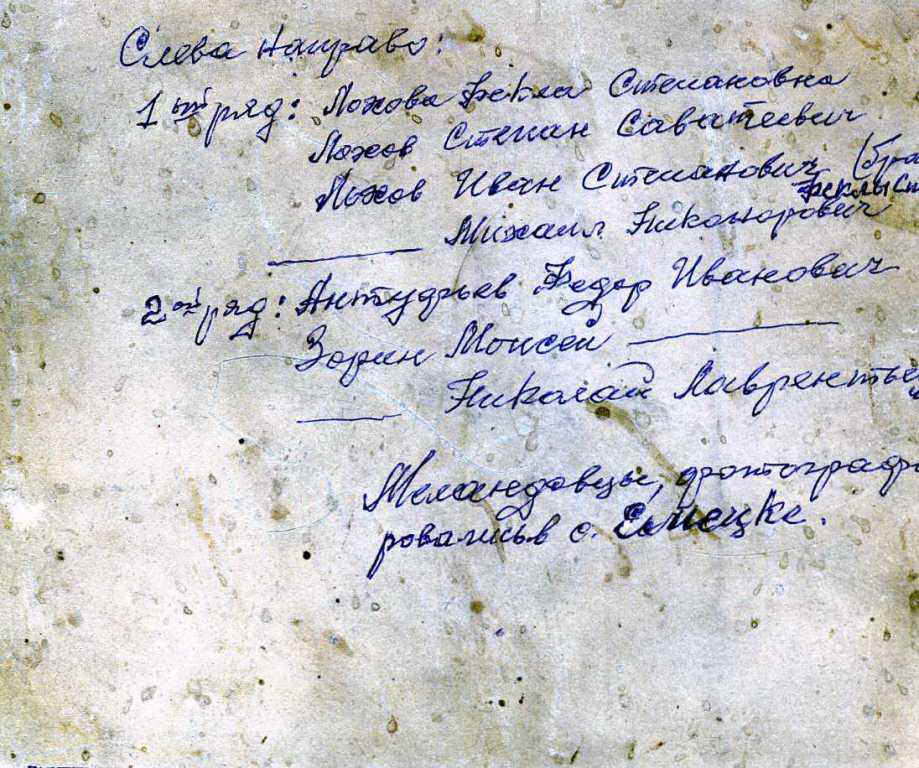 Слева направо:
1ый ряд: Лохова Фекла Степановна
Лохов Степан Саватеевич
Лохов Иван Степанович (бра
Феклы Ст
Михаил Никонорович
2ой ряд: Антуфьев Федор Иванович
Зорин Моисей
Николай Лаврентье
фотографи
ровались в с. Емецке.